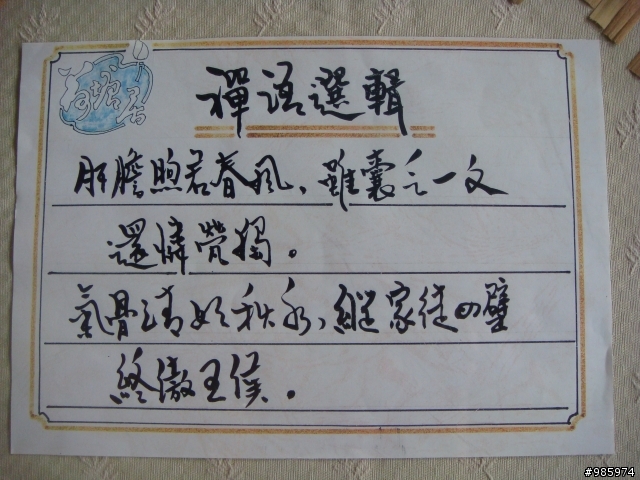 荷塘居
禪語選輯
肝膽煦若春風、雖囊乏一文
還憐煢獨。
氣骨清如秋水、縱家徒四壁
終傲王侯。
#985974